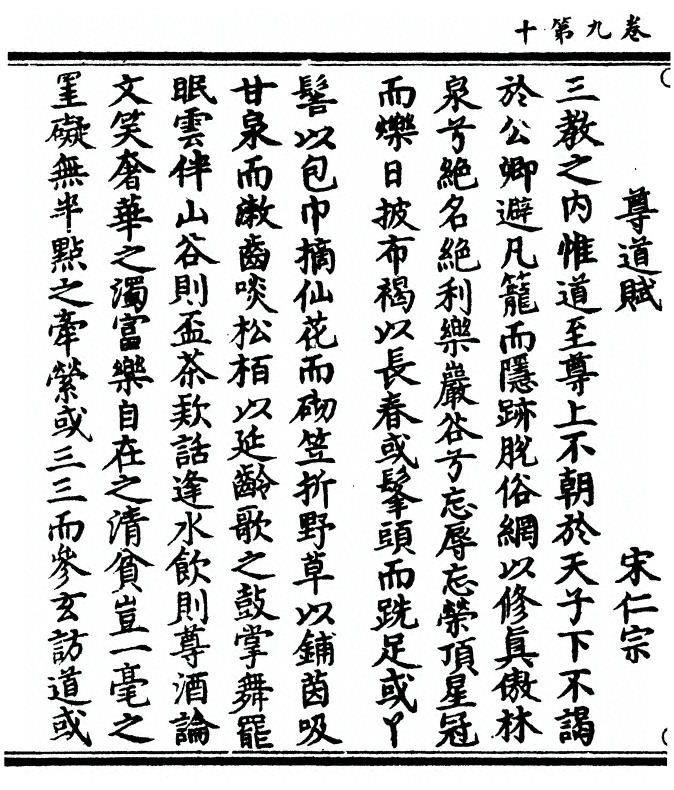 卷九第十
尊道賦　宋仁宗
三教之內惟道至尊上不朝於天子下不謁
於公卿避凡籠而隱跡脫俗網以修眞傲林
泉兮絕名絕利樂巖谷兮忘辱忘榮頂星冠
而爍日披布褐以長春或髼頭而跣足或丫
髻以包巾摘仙花而砌笠折野草以鋪茵吸
甘泉而漱齒啖松栢以延齡歌之鼓掌舞罷
眠雲伴山谷則盃茶欵話逢水飲則尊酒論
文笑奢華之濁富樂自在之清貧豈一毫之
罣礙無半點之牽縈或三三而參玄訪道或